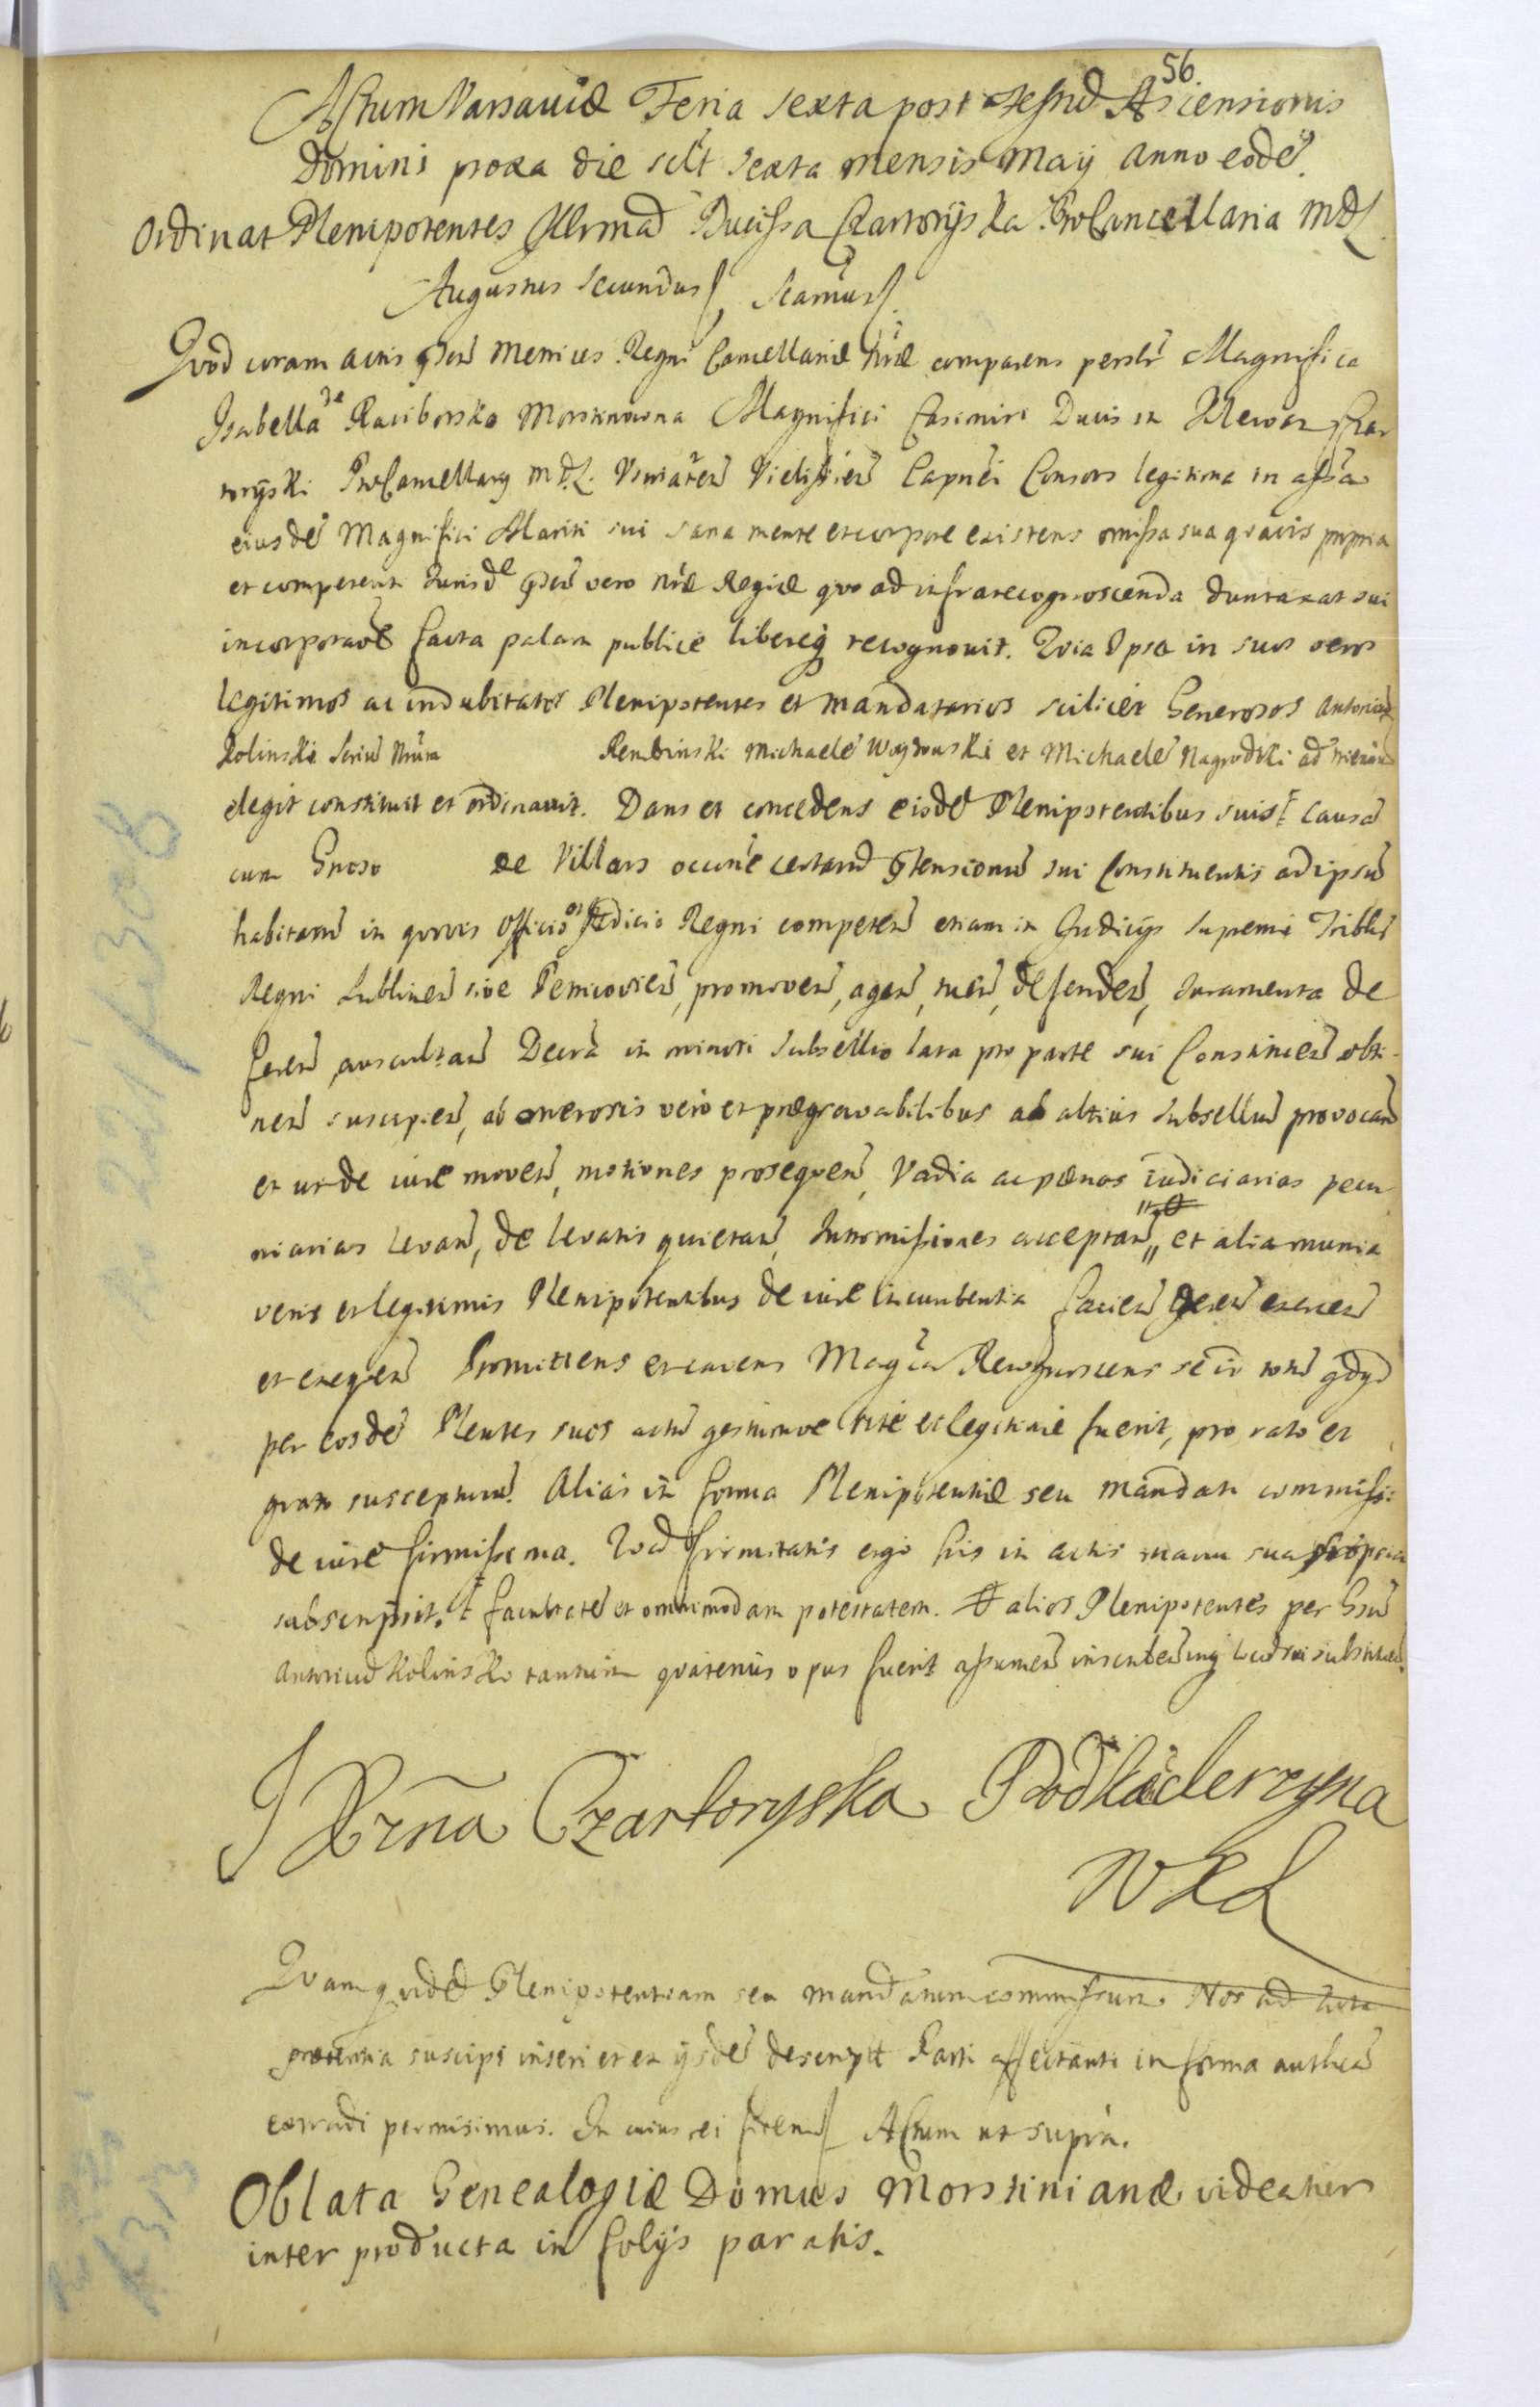 56.
Actum Varsaviæ Feria sexta post Festũ Ascensionis
Domini proxa die sclt sexta mensis Maij Anno eodẽ.
Ordinat Plenipotentes Illrma Ducissa Czartoryska ProCancellaria MDL
Augustus Secundus Scamus
Quod coram actis pñtibus Metrices Regni Cancellariæ Nræ comparens perslr Magnifica
Isabella de Raciborsko Morstinowna Magnifici Casimiri Ducis in Klewan Czar
toryski ProCancellarij MDL Usviaten Vielissien Capnei Consors legitima in assã
eiusdẽ Magnifici Mariti sui sana mente et corpore existens omissa sua quavis propria
et competenti Jurisde pñti vero Nræ Regiæ quo ad infra recognoscenda duntaxat sui
incorporaõe facta palam publice libereq recognovit. Quia Ipsa in suos veros
legitimos ac indubitatos Plenipotentes et mandatarios scilicet Generosos Antonium
Kolinski Rembinski Michaelẽ Woynowski et Michaelẽ Nagrodzki
elegit constituit et ordinavit. Dans et concedens eisdẽ Plenipotentibus suis Causã
cum Gnoso de Villars occne certarũ prtensionũ sui Constituentis ad ipsũ
habitarũ in quovis Officio et Judicio Regni competeñ etiam in Judicijs supremi Triblis
Regni Lublineñ sive Petricovieñ, promoveñ, ageñ, tueñ, defendeñ, Juramenta de
fereñ auscultañ Decrã in minori Subsellio lata pro parte sui Constitueñ obti-
neñ suscipieñ, ab onerosis vero et prægravabilibus ad altius subselliũ provocañ
et unde iure moveñ, motiones prosequeñ, Vadia ac pœnas iudiciarias pecu
niarias levañ, de levatis quietañ, Intromissiones acceptañ et alia munia
veris et legitimis Plenipotentibus de iure incumbentia facieñ gereñ exerceñ
et exequeñ Promittens et cavens Magca Recognoscens se id totũ qdqd
per eosdẽ Plentes suos actũ gestumve rite et legitime fuerit, pro rato et
grato suscepturã. Alias in forma Plenipotentiæ seu mandati commissi
de iure firmissima. Quod firmitatis ergo his in actis manu sua propria
subscripsit. facultatẽ et omnimodam potestatem. alios Plenipotentes per Gsũ
Antoniũ Kolinski tantum quatenus opus fuerit assumeñ inscribeñ inq locũ sui substitueñ
I Xzna Czartoryska Podkaclerzyna
WXL
Quam quidẽ Plenipotentiam seu mandatum commissum Nos ad Acta
præsentia suscipi inseri et ex ijsdẽ descriptã Parti affectanti in forma authen
extradi permisimus. In cuius rei fidem Actum ut supra.
Oblata Genealogiæ Domus Morstinianæ videatur
inter producta in folijs paratis.